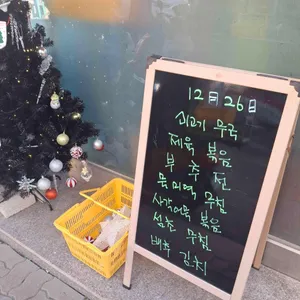 12월 26일
쇠고기 무국
제육 볶음
부추전
물미역 무침
사각어묵 볶음
상추 무침
배추 김치